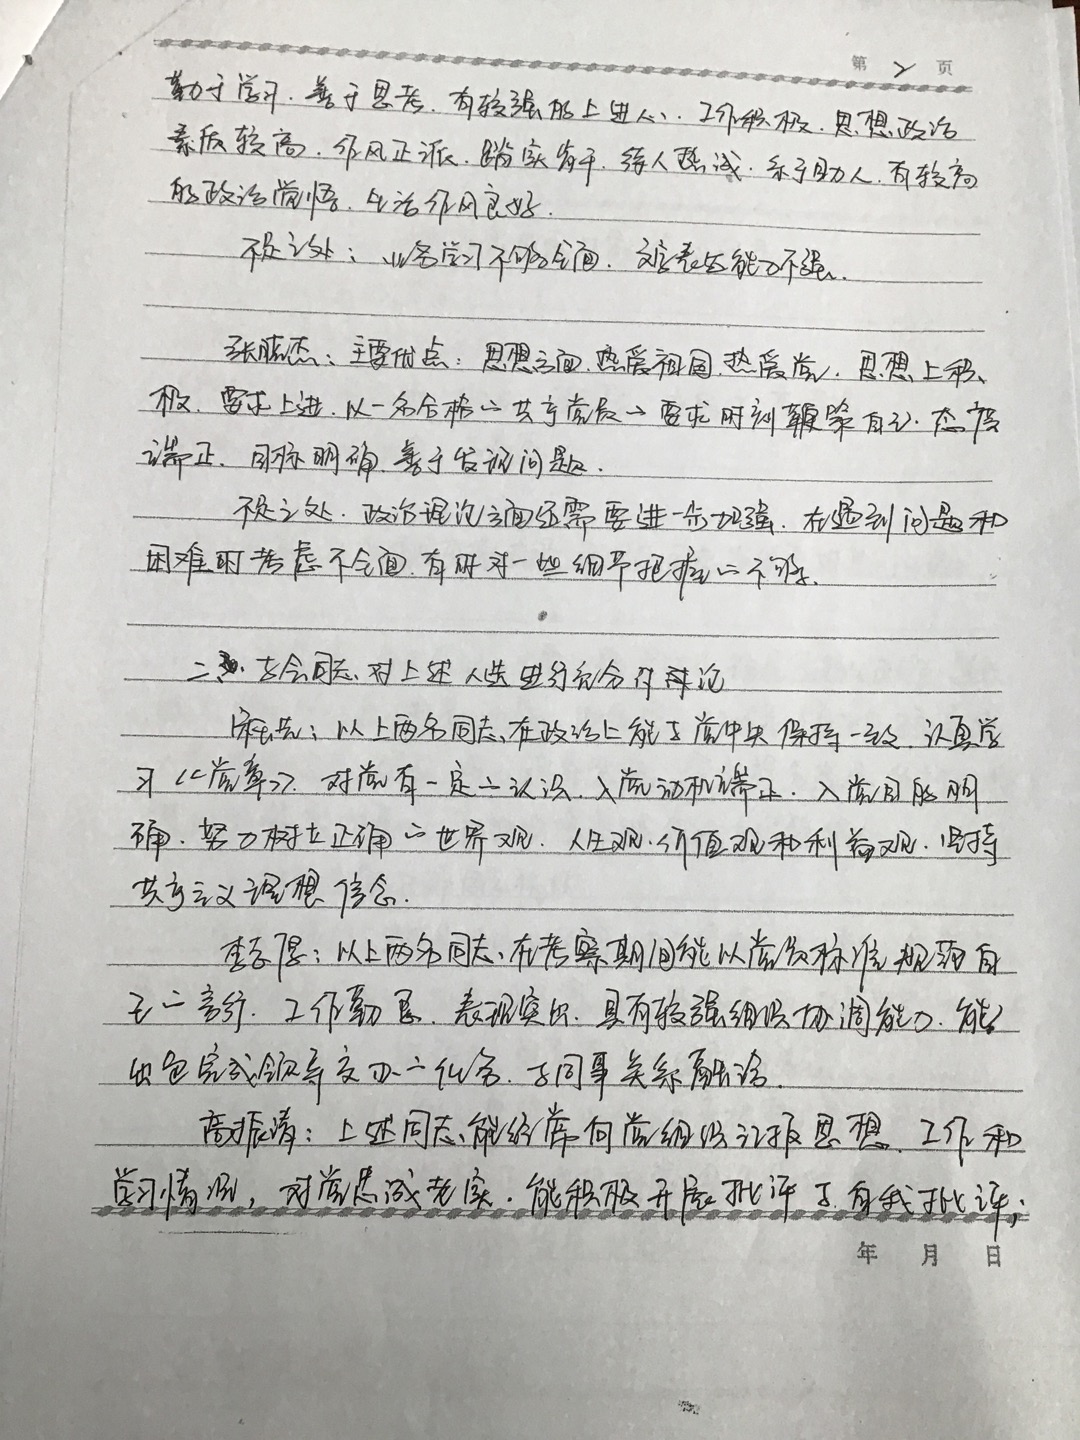 第 2 页
勤于学习、善于思考、有较强的上进心、工作积极、思想政治
素质较高、作风正派、踏实肯干、待人热诚、乐于助人、有较高
的政治觉悟、生活作风良好.
不足之处：业务学习不够全面、文字表达能力不强.
张晓杰：主要优点：思想方面、热爱祖国、热爱党、思想上积
极、要求上进、以一名合格的共产党员的要求时刻鞭策自己、态度
端正、目标明确、善于发现问题.
不足之处、政治理论方面还需要进一步加强、在遇到问题和
困难时考虑不全面、有时对一些细节把握的不够.
二、与会同志对上述人选进行充分讨论
以上两名同志、在政治上能与党中央保持一致、认真学
习《党章》、对党有一定的认识、入党动机端正、入党目的明
确、努力树立正确的世界观、人生观、价值观和利益观、坚持
共产主义理想信念.
以上两名同志、在考察期间能以党员标准规范自
己的言行、工作勤恳、表现突出、具有较强组织协调能力、能
出色完成领导交办的任务、与同事关系融洽.
高振清：上述同志、能经常向党组织汇报思想、工作和
学习情况，对党忠诚老实、能积极开展批评与自我批评；
年 月 日